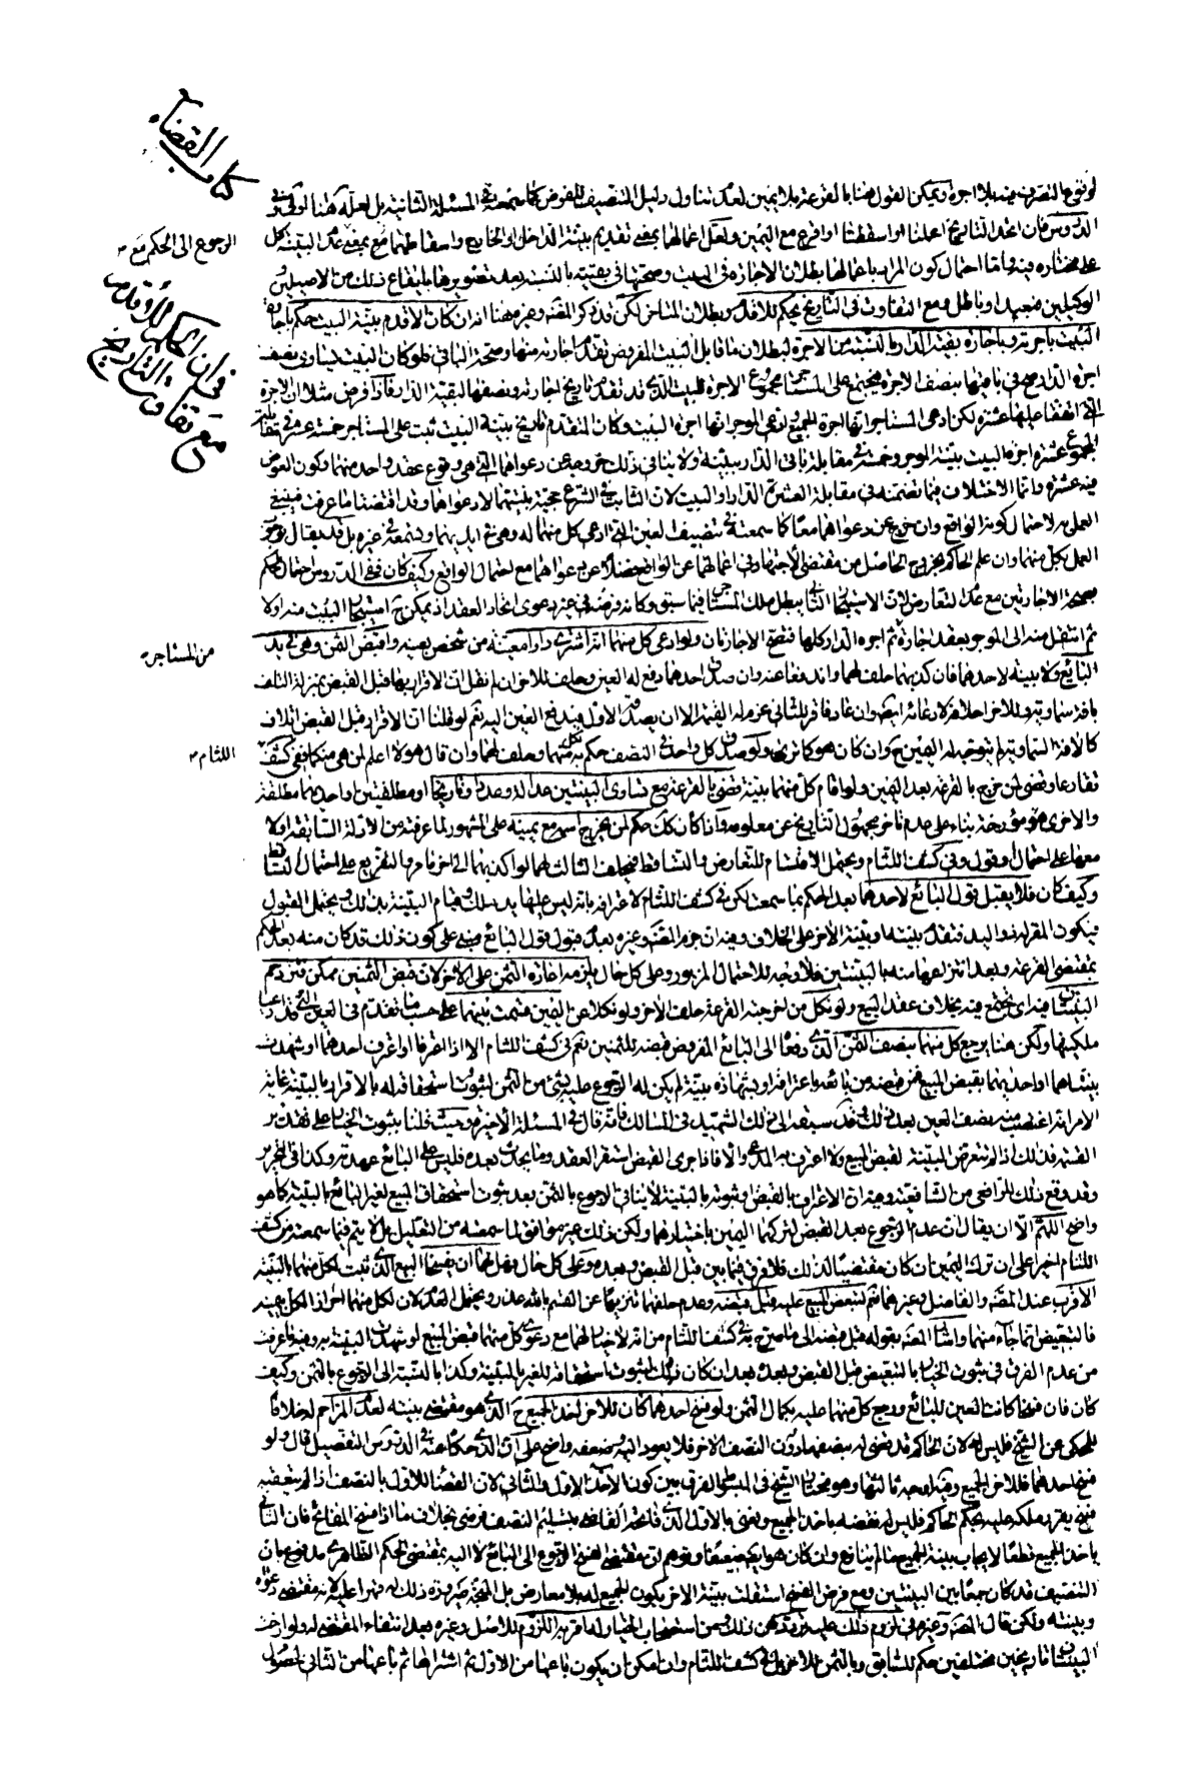 كتاب القضاء
الرجوع الى الحكم مع
في ان الحكم للأقدم
مع تفاوت التاريخ
من المستاجر
اللثام
لوقوع التصرف منه بلا اجرة ويمكن القول هنا بالقرعة بلا يمين لعدم تناول دليل التنصيف للفرض كما سمعته في المسئلة الثانية بل لعله كهنا لو كن في
الدروس فان اتحد التاريخ اعملنا او اسقطنا او اقرع مع اليمين ولعل اعمالها بمعنى تقديم بينة الداخل او الخارج واسقاطهما مع بمعنى عدم البينة كل
على مختاره فيه واما احتمال كون المراد باعمالها بطلان الاجارة في البيت وصحتها في بقيته بالنسبة بعد تصويرها بايقاع ذلك من الاصيلين
الوكيلين فبعيد او باطل ومع التفاوت في التاريخ يحكم للاقدم وبطلان المتاخر لكن قد ذكر المصنف وغيره هنا انه ان كان الاقدم بينة البيت حكم باجارة
البيت باجرته وباجارة بقية الدار بالنسبة من الاجرة لبطلان ما قابل البيت المفروض تقدم اجارته منها وصحة الباقي فلو كان البيت يساوى نصف
اجرة الدار صح في باقيها بنصف الاجرة فيجتمع على المستاجر مجموع الاجرة للبيت الذى قد تقدم تاريخ اجارته ونصفها لبقية الدار وقد فرض مثلا ان الاجرة
التي اتفقا عليها عشرة لكن ادعى المستاجر انها اجرة للجميع وادعى الموجر انها اجرة البيت وكان المتقدم تاريخ بينة البيت ثبت على المستاجر خمسة عشر في مقابلة
المجموع عشرة اجرة البيت ببينة الموجر وخمسة في مقابلة باقي الدار ببينته ولا ينافي ذلك خروجه عن دعواهما التي هي وقوع عقد واحد منهما وكون العوض
فيه عشرة وانما الاختلاف فيما تضمنته في مقابلة العشرة الدار او البيت لان الثابت في الشرع حجية بينتهما لا دعواهما وقد اقتضتا ما عرفت فينبغى
العمل به لاحتمال كونه الواقع وان خرج عن دعواهما معا كما سمعته في تنصيف العين التي ادعى كل منهما له وهي في ايديهما وتسمعه في غيره بل قد يقال بوجوب
العمل بكل منهما وان علم الحاكم بخروج الحاصل من مقتضى الاجتهاد في اعمالهما عن الواقع فضلا عن دعواهما مع احتمال الواقع وكيف كان ففي الدروس احتمال الحكم
بصحة الاجارتين مع عدم التعارض لان الاستيجار الثاني يبطل ملك المستاجر فيما سبق وكانه فرضه في غير دعوى اتحاد العقد اذ يمكن ح استيجار البيت منه اولا
ثم انتقل منه الى الموجر بعقد اجارة ثم اجره الدار كلها فتصح الاجارتان ولو ادعى كل منهما انه اشترى دارا معينة من شخص بعينه واقبض الثمن وهي في يد
البائع ولا بينة لاحدهما فان كذبهما حلف لهما واندفعا عنه وان صدق احدهما دفع له العين وحلف للاخر ان لم نقل ان الاقرار بها قبل القبض بمنزلة التلف
كالافة السماوية والا لم يتوجه له اليمين ح وان كان هو كاذبا ولو صدق كل واحد في النصف حكم به لهما وحلف لهما وان قال هو لا اعلم لمن هي منكما ففى كشف
تقارعا وقضى لمن خرج بالقرعة بعد اليمين ولو اقام كل منهما بينة قضى بالقرعة مع تساوى البينتين عدالة وعددا وتاريخا او مطلقتين او احديهما مطلقة
والاخرى مؤرخة بناء على عدم تاخر مجهول التاريخ عن معلومه واذا كان كك حكم لمن يخرج اسمه مع يمينه على المشهور لما عرفته من الادلة السابقة او لا
معها على احتمال وقول وفي كشف اللثام ويحتمل الاقتسام للتعارض والتساقط فيحلف الثالث لهما لو اكذبهما الى اخر ما مر بالتفريع على احتمال التساقط
وكيف كان فلا يقبل قول البائع لاحدهما بعد الحكم بما سمعت لكن في كشف اللثام لاعترافه بانه ليس عليها يد ملك وقيام البينة بذلك ويحتمل القبول
فيكون المقر له ذو اليد فتقدم بينته او بينة الاخر على الخلاف وفيه ان جزم المصنف وغيره بعدم قبول قول البائع مبني على كون ذلك قد كان منه بعد الحكم
بمقتضى القرعة وبعد انتزاعها منه بالبينتين فلا وجه للاحتمال المزبور وعلى كل حال يلزمه اعادة الثمن على الاخر لان قبض الثمنين ممكن فتزدحم
البينتان فيه اى تجتمع فيه بخلاف عقد البيع ولو نكل من اخرجته القرعة حلف الاخر ولو نكلا عن اليمين قسمت بينهما على حسب ما تقدم في العين التي قد تداعيا
ملكيتها ولكن هنا يرجع كل منهما بنصف الثمن الذى دفعا الى البائع المفروض قبضه للثمنين نعم في كشف اللثام الا اذا اعترفا او اعترف احدهما او شهدت
بينتاهما او احديهما بقبض المبيع فمن قبضه من بائعه باعترافه او بشهادة بينة لم يكن له الرجوع عليه بشئ من الثمن لثبوت استحقاقه له بالاقرار او بالبينة غاية
الامر انه اغتصب منه نصف العين بعد ذلك وقد سبقه الى ذلك الشهيد في المسالك فانه قال في المسئلة الاخيرة وحيث قلنا بثبوت الخيار على تقدير
القسمة فذلك اذا لم تتعرض البينة لقبض المبيع ولا اعترف به المدعى والا فاذا جرى القبض استقر العقد وما يحدث بعده فليس على البائع عهدته وكذا في التحرير
وقد وقع ذلك للرافعى من الشافعية وفيه ان الاعتراف بالقبض او ثبوته بالبينة لا ينافي الرجوع بالثمن بعد ثبوت استحقاق المبيع لغير البائع بالبينة كما هو
واضح اللهم الا ان يقال ان عدم الرجوع بعد القبض لتركهما اليمين باختيارهما ولكن ذلك غير موافق لما سمعته من التعليل بل لا يتم فيما سمعته من كشف
اللثام اخيرا على ان ترك اليمين ان كان مقتضيا لذلك فلا فرق فيما بين قبل القبض وبعده وعلى كل حال فهل لهما ان يفسخا البيع الذى ثبت لكل منهما بالبينة
الاقرب عند المصنف والفاضل وغيرهما نعم لتبعض المبيع عليه قبل قبضه وعدم حلفهما تنزيها عن القسم بالله عذر ويحتمل العدم لان لكل منهما احراز الكل بيمينه
فالتبعيض انما جاء منهما واشار المصنف بقوله قبل قبضه الى ما صرح به في كشف اللثام من انه لا خيار لهما مع دعوى كل منهما قبض المبيع او شهدت البينة به وفيه ما عرفت
من عدم الفرق في ثبوت الخيار بالتبعيض قبل القبض وبعده بعد ان كان ذلك لثبوت استحقاقه للغير بالبينة وكذا بالنسبة الى الرجوع بالثمن وكيف
كان فان فسخا كانت العين للبائع ورجع كل منهما عليه بكمال الثمن ولو فسخ احدهما كان للاخر اخذ الجميع ح الذى هو مقتضى بينته لعدم المزاحم له خلافا
للمحكى عن الشيخ فليس له لان الحاكم قد قضى له بنصفها دون النصف الاخر فلا يعود اليه وضعفه واضح على ان الذى حكاه عنه في الدروس التفصيل قال ولو
فسخ احدهما فللاخر الجميع وفيه اوجه ثالثها وهو مختار الشيخ في المبسوط الفرق بين كون الاخذ الاول والثاني لان القضاء للاول بالنصف اذا لم يتعقبه
فسخ يقرر ملكه عليه بحكم الحاكم فليس له نقضه باخذ الجميع ويعنى بالاول الذى فاتحه القاضى بتسليم النصف فرضى بخلاف ما اذا فسخ المفاتح فان الثاني
ياخذ الجميع قطعا لايجاب بينته الجميع فما لم ينازع وان كان هو ايضا ضعيفا وتوهم ان مقتضى الفسخ الرجوع الى البائع لا اليه بمقتضى الحكم الظاهرى مدفوع بان
التنصيف قد كان جمعا بين البينتين ومع فرض الفسخ استقلت بينة الاخر بكون الجميع له بلا معارض بل المتجه صيرورة ذلك له قهرا عليه لانه مقتضى دعواه
وبينته ولكن قال المصنف وغيره في لزوم ذلك عليه تردد
البينتان تاريخين مختلفين حكم للسابق وبالثمن للاخر بل في كشف اللثام وان امكن ان يكون باعها من الاول ثم اشتراها ثم باعها من الثاني لحصول